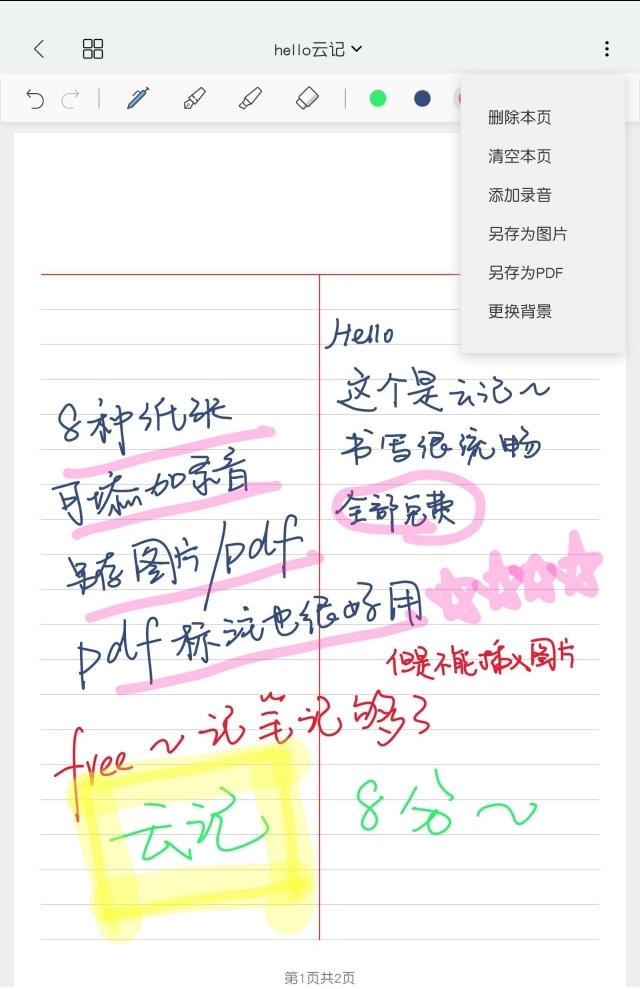 hello云记
删除本页
清空本页
添加录音
另存为图片
另存为PDF
更换背景
Hello
这个是云记~
书写很流畅
全部免费
8种纸张
可添加录音
另存图片/pdf
pdf标注也很好用
但是不能插入图片
free~记笔记够了
云记
8分~
第1页共2页